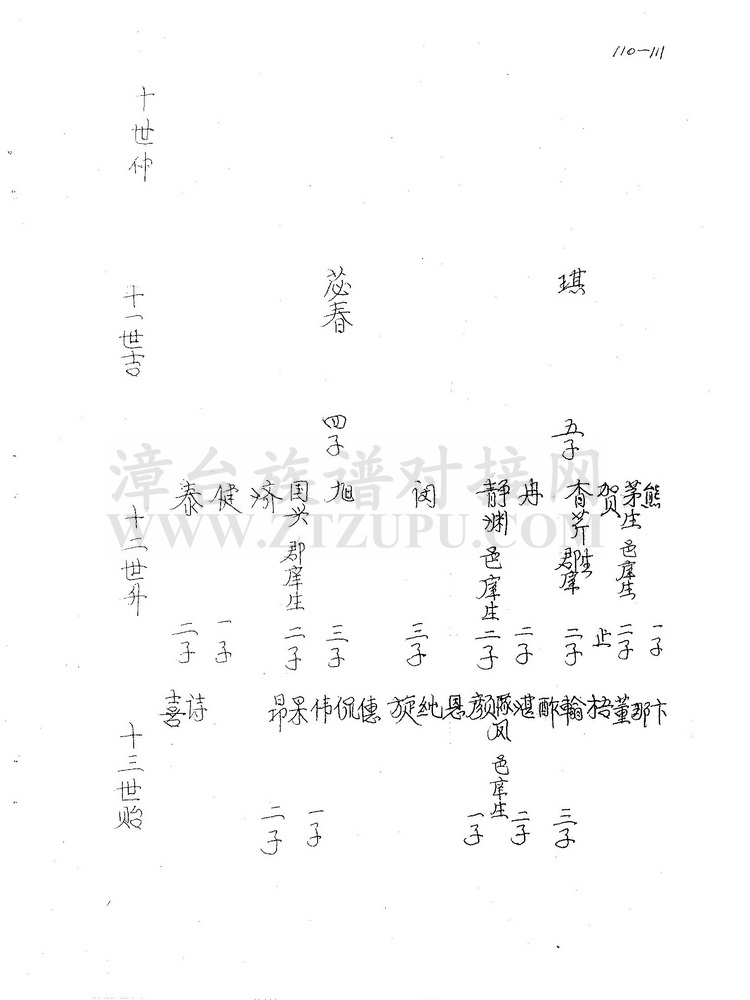 110-111
十世仲
十一世吉
琪
五子
苾春
四子
十二世升
熊
一子
茅生 邑庠生
二子
贺
止
香芹 郡庠生
二子
冉
二子
静渊 邑庠生
二子
闵
三子
旭
三子
国兴 郡庠生
二子
济
健
一子
泰
二子
十三世贻
卞
那
董
梧
翰
三子
酢
湛
二子
凤 邑庠生
颜
一子
恳
纰
旋
僡
侃
伟
一子
果
昂
二子
诗
喜
漳台族谱对接网
WWW.ZTZUPU.COM